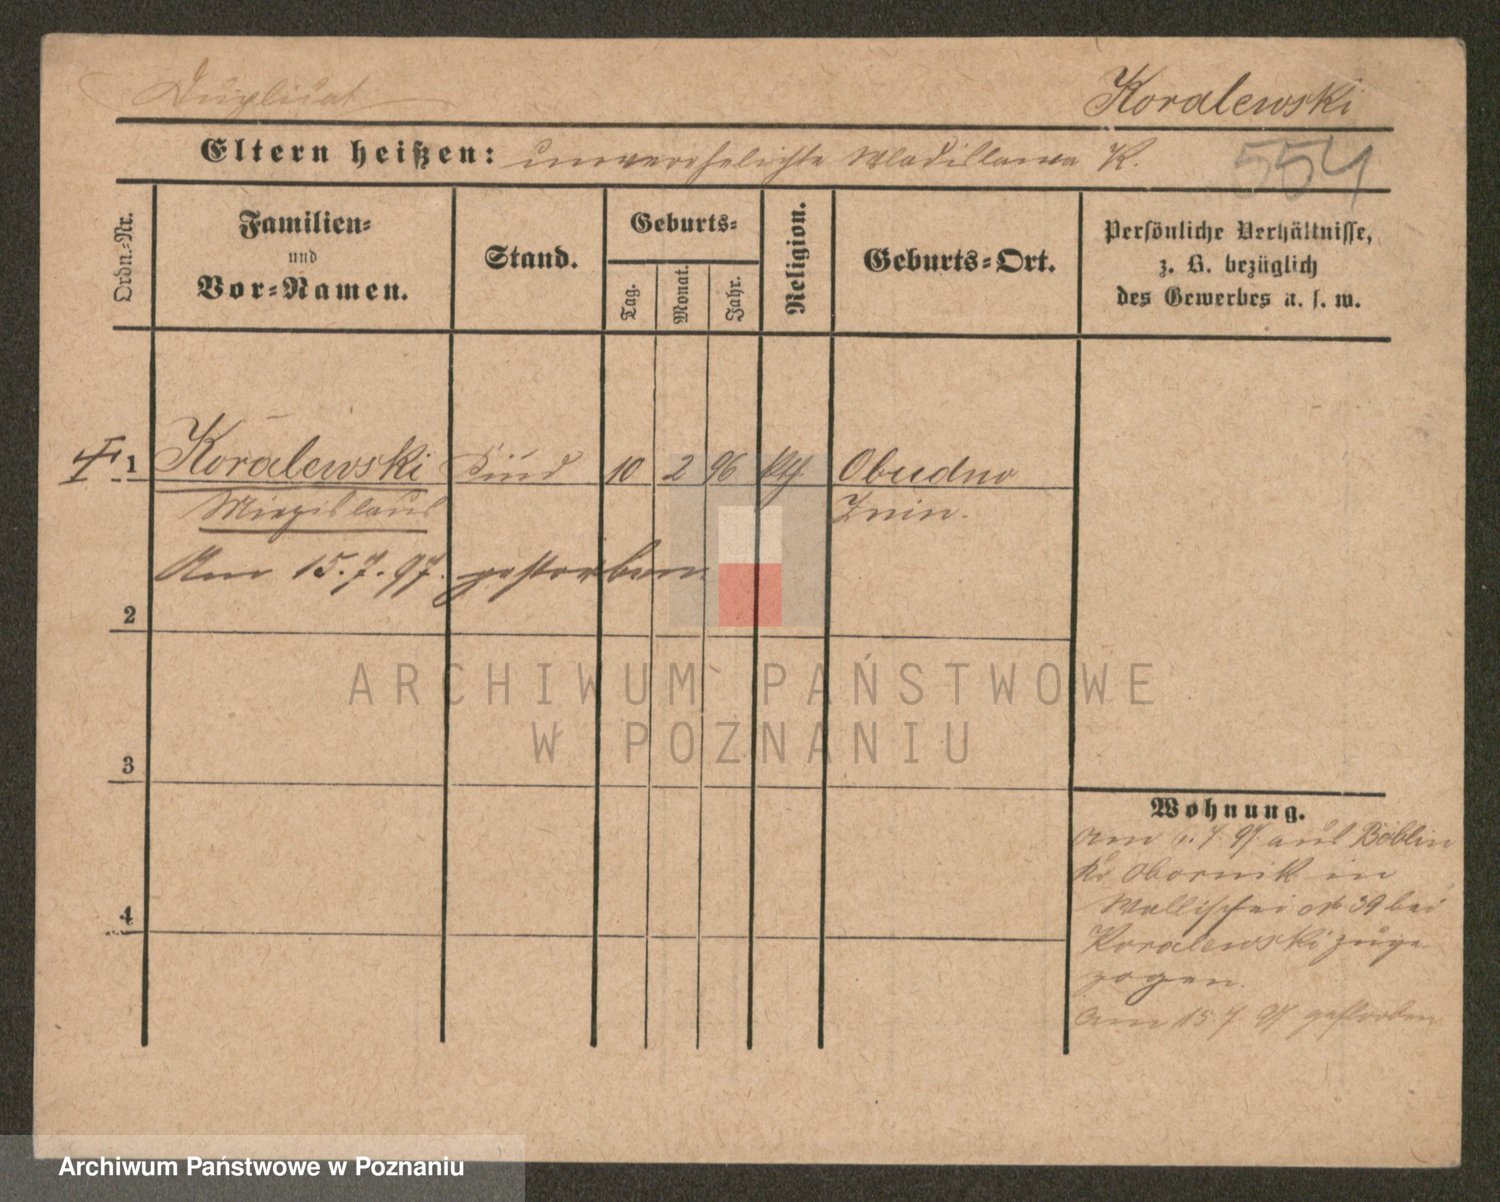 Duplicat
Koralewski
Eltern heißen: unverehelichte Wladislawa K.
554
Ordn.-Nr.
Familien-
und
Vor-Namen.
Stand.
Geburts-
Tag.
Monat.
Jahr.
Religion.
Geburts-Ort.
Persönliche Verhältnisse,
z. B. bezüglich
des Gewerbes u. s. w.
1 Koralewski Kind 10 2 96 kth. Obudno
Miezislaus Znin.
Am 15.7.97. gestorben
2
3
4
Wohnung.
Am 1.7.97. aus Boblin
Kr Obornik in
Wallischei No 39 bei
Koralewski zuge
zogen.
Am 15 7 97 gestorben
ARCHIWUM PAŃSTWOWE
W POZNANIU
Archiwum Państwowe w Poznaniu